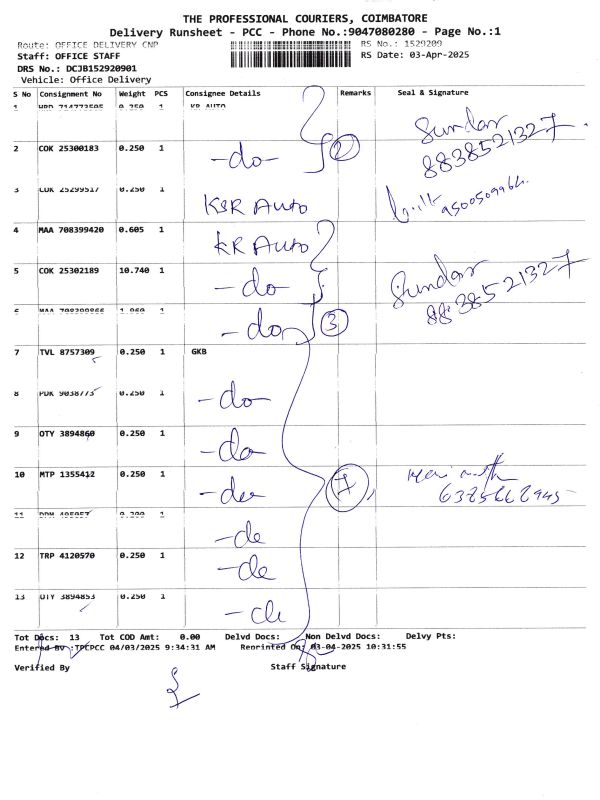 THE PROFESSIONAL COURIERS, COIMBATORE
Delivery Runsheet - PCC - Phone No.:9047080280 - Page No.:1
Route: OFFICE DELIVERY CNP RS No.: 1529209
Staff: OFFICE STAFF RS Date: 03-Apr-2025
DRS No.: DCJB152920901
Vehicle: Office Delivery
S No Consignment No Weight PCS Consignee Details Remarks Seal & Signature
1 0.250 1 KR AUTO
Sundar
8838521327
2 COK 25300183 0.250 1 -do- 2
3 COK 25299517 0.250 1 KSR Auto 9500509964
4 MAA 708399420 0.605 1 KR Auto
5 COK 25302189 10.740 1 -do- Sundar
8838521327
6 1 -do- 3
7 TVL 8757309 0.250 1 GKB
8 PDK 9038773 0.250 1 -do-
9 OTY 3894860 0.250 1 -do-
10 MTP 1355412 0.250 1 -do- 7
11 1 -do
12 TRP 4120570 0.250 1 -do
13 OTY 3894853 0.250 1 -do
Tot Docs: 13 Tot COD Amt: 0.00 Delvd Docs: Non Delvd Docs: Delvy Pts:
Entered By :TPCPCC 04/03/2025 9:34:31 AM Reprinted On: 03-04-2025 10:31:55
Verified By Staff Signature